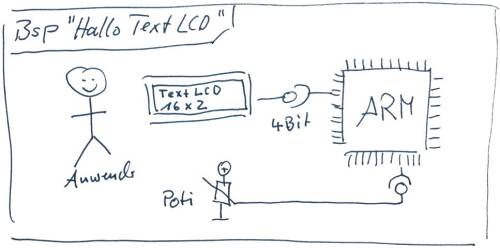 Bsp "Hallo Text LCD"
Text LCD
16x2
4Bit
ARM
Anwender
Poti
+